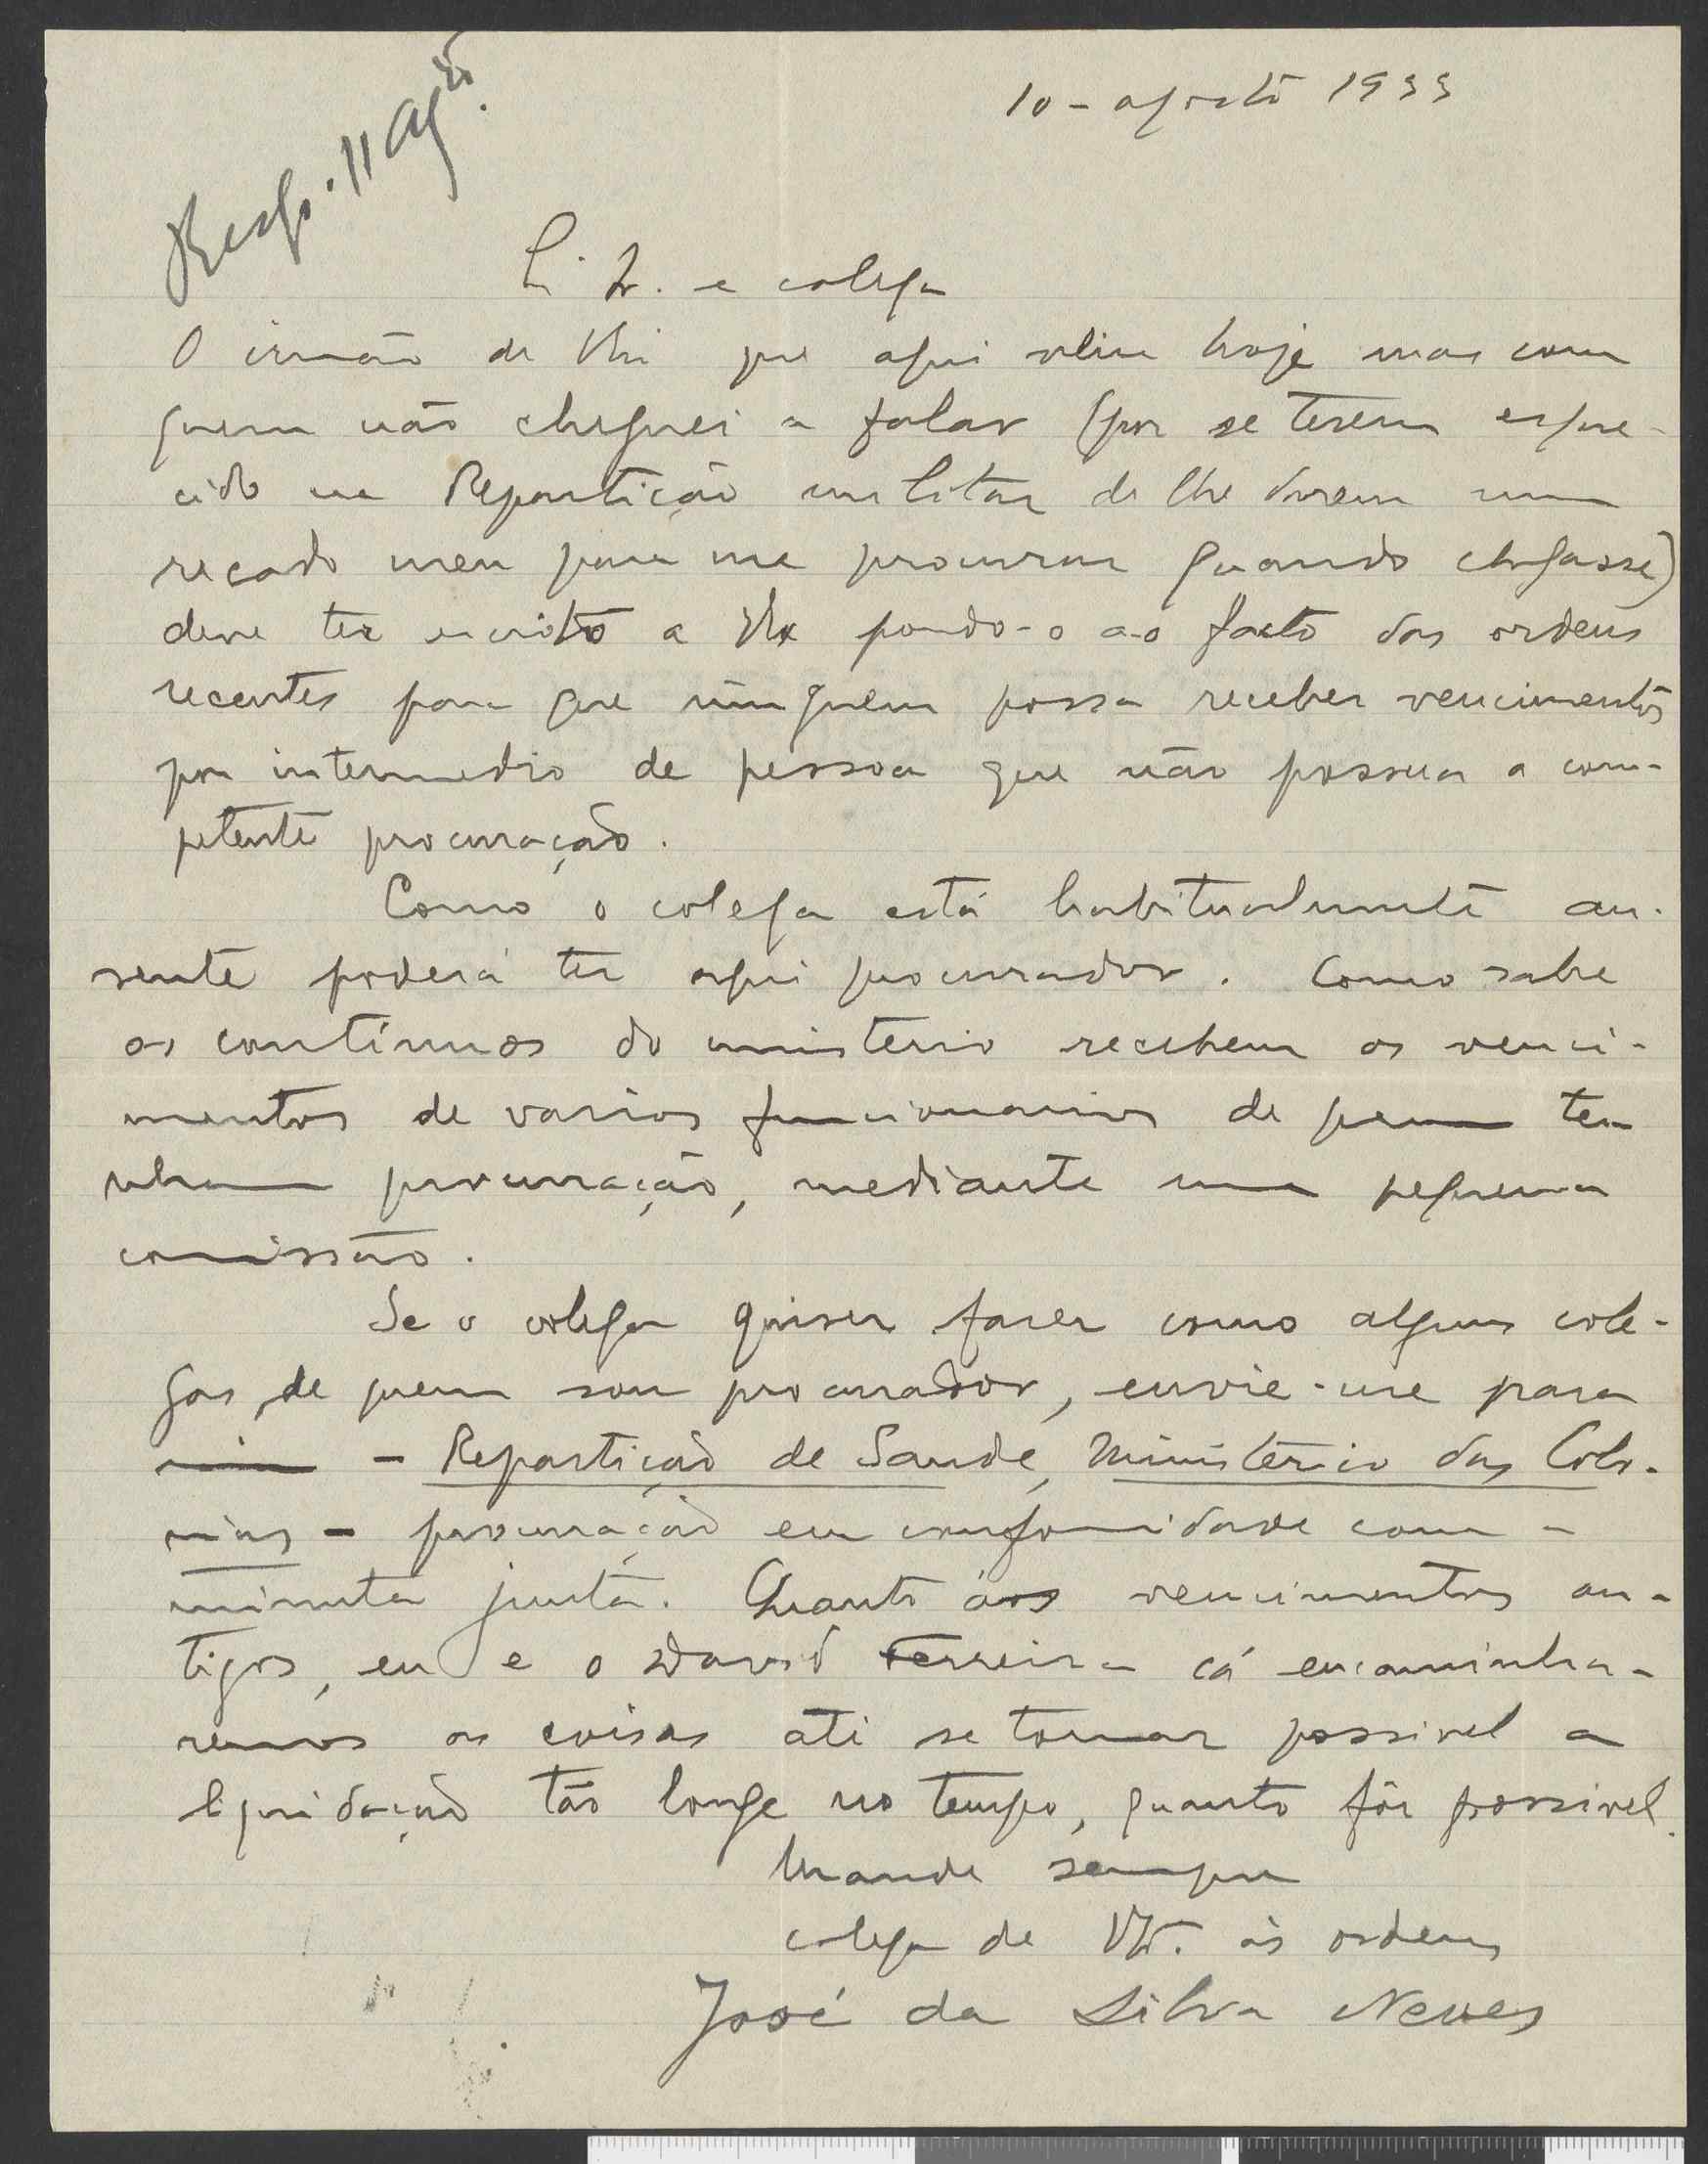 Resp. 11 Ag.to
10 - agosto 1933
e colega
O irmão de que aqui veiu hoje mas com
quem não cheguei a falar (por se terem esque-
cido na Repartição militar de lhe darem um
recado meu para me procurar quando chegasse)
deve ter escrito a V. Ex pondo-o ao facto das ordens
recentes para que ninguem possa receber vencimentos
por intermedio de pessoa que não possua a com-
petente procuração.
Como o colega está habitualmente au-
sente poderá ter aqui procurador. Como sabe
os contínuos do ministerio recebem os venci-
mentos de varios funcionarios de quem te-
nham procuração, mediante uma pequena
comissão.
Se o colega quiser fazer como alguns cole-
gas, de quem sou procurador, envie-me para
mim - Repartição de Saude, Ministério das Colo-
nias - procuração em conformidade com a
minuta junta. Quanto aos vencimentos an-
tigos, eu e o David Ferreira cá encaminha-
remos as coisas até se tornar possivel a
liquidação tão longe no tempo, quanto fôr possivel.
Mande sempre
colega de às ordens
José da Silva Neves